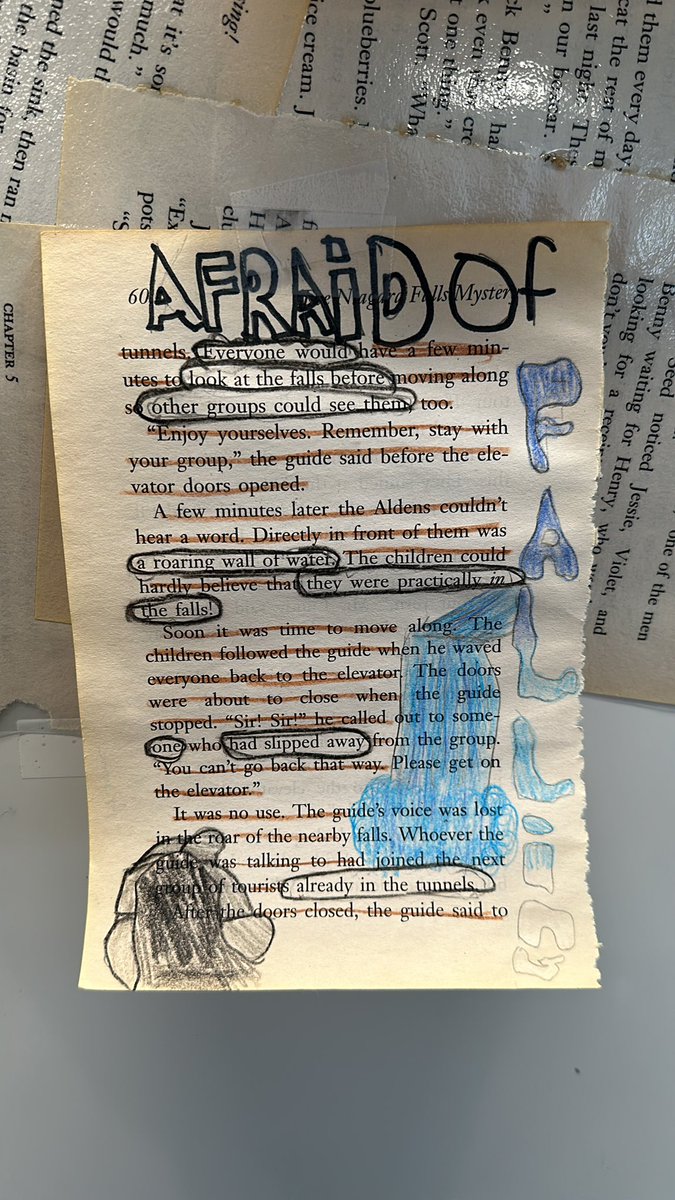 ving!
at it's so
much."
would th
ned the sink, then ran
the basin for
ice cream. J
blueberries.
ck Benny ha
k even
t one thing."
Scott. "Wha
d them every day,
cat the rest of m
last night. The
n our
pots
CHAPTER 5
AFRAID Of
60 Niagara Falls Mystery
tunnels. Everyone would have a few min-
utes to look at the falls before moving along
so other groups could see them, too.
"Enjoy yourselves. Remember, stay with
your group," the guide said before the ele-
vator doors opened.
A few minutes later the Aldens couldn't
hear a word. Directly in front of them was
a roaring wall of water. The children could
hardly believe that they were practically in
the falls!
Soon it was time to move along. The
children followed the guide when he waved
everyone back to the elevator. The doors
were about to close when the guide
stopped. "Sir! Sir!" he called out to some-
one who had slipped away from the group.
"You can't go back that way. Please get on
the elevator."
It was no use. The guide's voice was lost
in the roar of the nearby falls. Whoever the
guide was talking to had joined the next
group of tourists already in the tunnels.
After the doors closed, the guide said to
FALLiNG
one of the men
seed noticed Jessie, Violet, and
Benny waiting for Henry, who
looking for a
don't